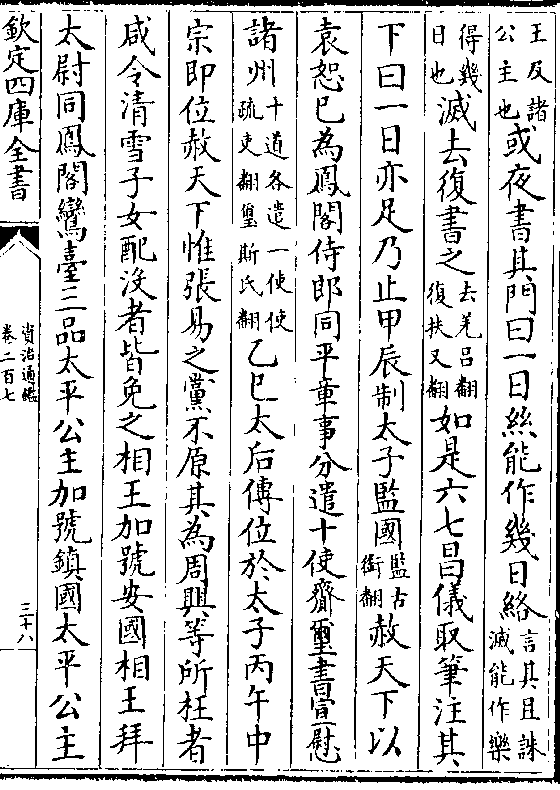 王及諸公主也或夜書其門曰一日絲能作幾日絡言其且誅滅能作樂
得幾日也滅去復書之去羌呂翻復扶又翻如是六七昌儀取筆注其
下曰一日亦足乃止甲辰制太子監國監古銜翻赦天下以
袁恕已為鳳閣侍郎同平章事分遣十使齎璽書宣慰
諸州十道各遣一使使疏吏翻璽斯氏翻乙巳太后傳位於太子丙午中
宗即位赦天下惟張易之黨不原其為周興等所枉者
咸令清雪子女配沒者皆免之相王加號安國相王拜
太尉同鳳閣鸞臺三品太平公主加號鎮國太平公主
欽定四庫全書
資治通鑑
卷二百七
三十八